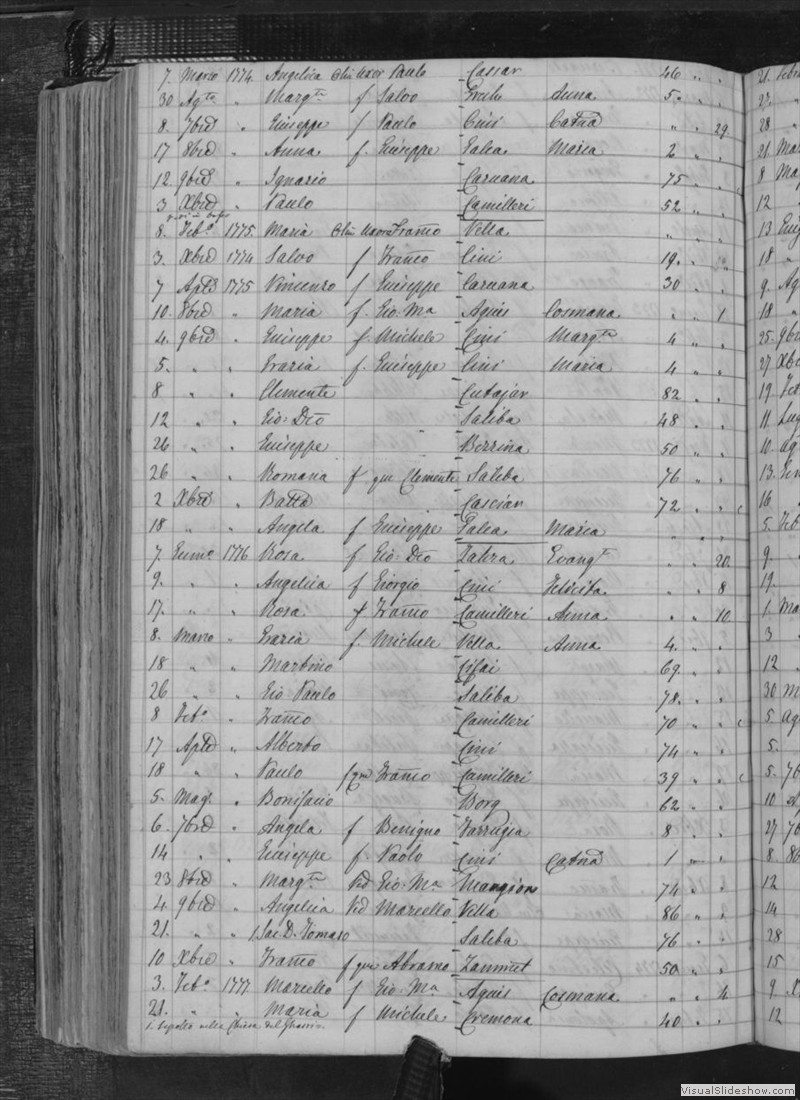 7. Marzo 1774 Angelica Olim Uxor Paulo Cassar 46 " "
30 Agto " Margta f Salvo Grech Anna 5 " "
8. 7bre " Giuseppe f Paulo Cini Catna " " 29
17 8bre " Anna f. Giuseppe Galea Maria 2 " "
12. 9bre " Ignazio Caruana 75 " "
3 Xbre " Paulo Camilleri 52 " "
8. Feb. 1775. Maria Olim Uxor Franco Vella " "
3. Xbre 1774 Salvo f Franco Cini 19. "
7 Aple 1775 Vincenzo f Giuseppe Caruana 30 " "
10. 8bre " Maria f. Gio. Ma Agius Cosmana " " 1
4. 9bre " Giuseppe f Michele Cini Margta 4 " "
5. " " Grazia f. Giuseppe Cini Maria 4 " "
8 " " Clemente Cutajar 82 " "
12 " " Gio: Dco Saliba 48 " "
26 " " Giuseppe 50 " "
26 " " Romana f qm Clemente Saliba 76 " "
2 Xbre " Batta 72 " "
18 " " Angela f Giuseppe Galea Maria " "
7. Genno 1776 Rosa f Gio: Dco Zahra Evangta " " 20
9. " " Angelica f Giorgio Cini Felicita " " 8
17. " " Rosa f Franco Camilleri Anna " " 10
8. Marzo " Grazia f. Michele Vella Anna 4. " "
18 " " Martino Cifai 69. "
26 " " Gio Paulo Saliba 78. "
8 Feb. " Franco Camilleri 70 " "
17 Aple " Alberto Cini 74 " "
18 " " Paulo f qm Franco Camilleri 39 " "
5. Mag. " Bonifacio Borg 62 " "
6. 7bre " Angela f Benigno Farrugia 8 " "
14 " " Giuseppe f. Paolo Cini Catna 1 " "
23 8bre " Margta Vid Gio. Ma Mangion 74 " "
4. 9bre " Angelica Vid Marcello Vella 86 " "
21. " " 1 Sac D. Tomaso Saliba 76 " "
10 Xbre " Franco f qm Abramo Zammit 50 " "
3. Feb. 1777 Marcello f Gio. Ma Agius Cosmana " " 4
21. " " Maria f Michele Cremona 40 " "
1. Sepolto nella Chiesa del
VisualSlideshow.com